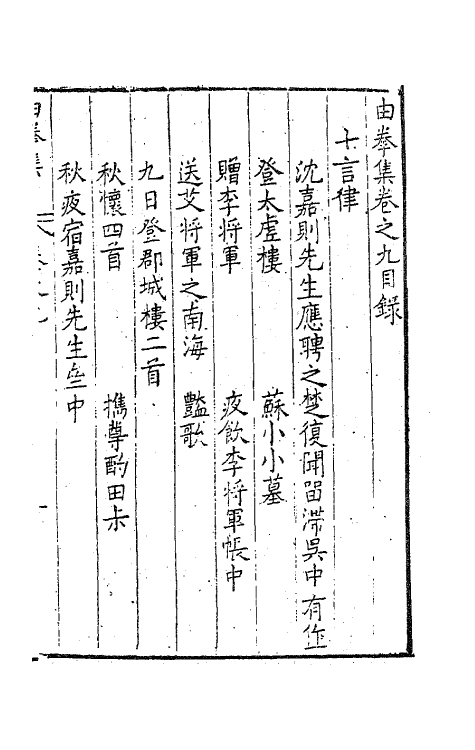 由拳集卷之九目錄
七言律
沈嘉則先生應聘之楚復聞畱滯吳中有作
登太虛樓　蘇小小墓
贈李將軍　夜飲李將軍帳中
送艾將軍之南海　豔歌
九日登郡城樓二首
秋懷四首　攜尊酌田朩
秋夜宿嘉則先生壘中
由拳集　卷之九　一